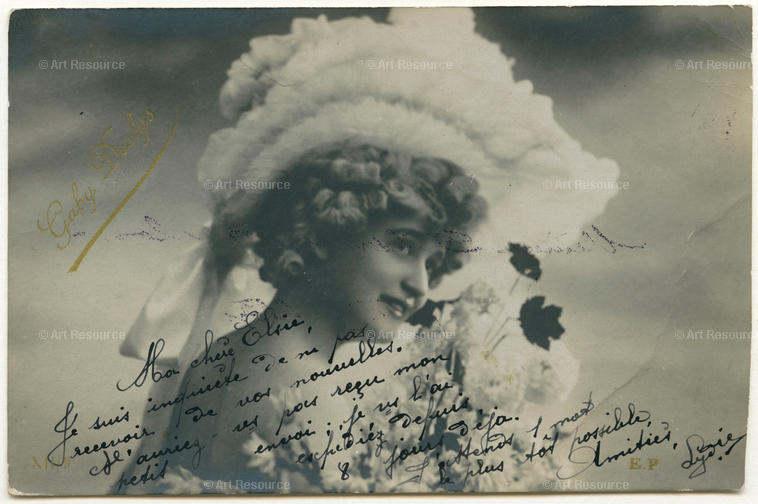 Gaby Deslys
Ma chère Elsie,
Je suis inquiète de ne pas
recevoir de vos nouvelles.
N'auriez-vs pas reçu mon
petit envoi.. je vs l'ai
expédiez depuis
8 jours déjà.
J'attends 1 mot
le plus tôt possible,
Amitiés,
E.P
© Art Resource
© Art Resource
© Art Resource
© Art Resource
© Art Resource
© Art Resource
© Art Resource
© Art Resource
© Art Resource
© Art Resource